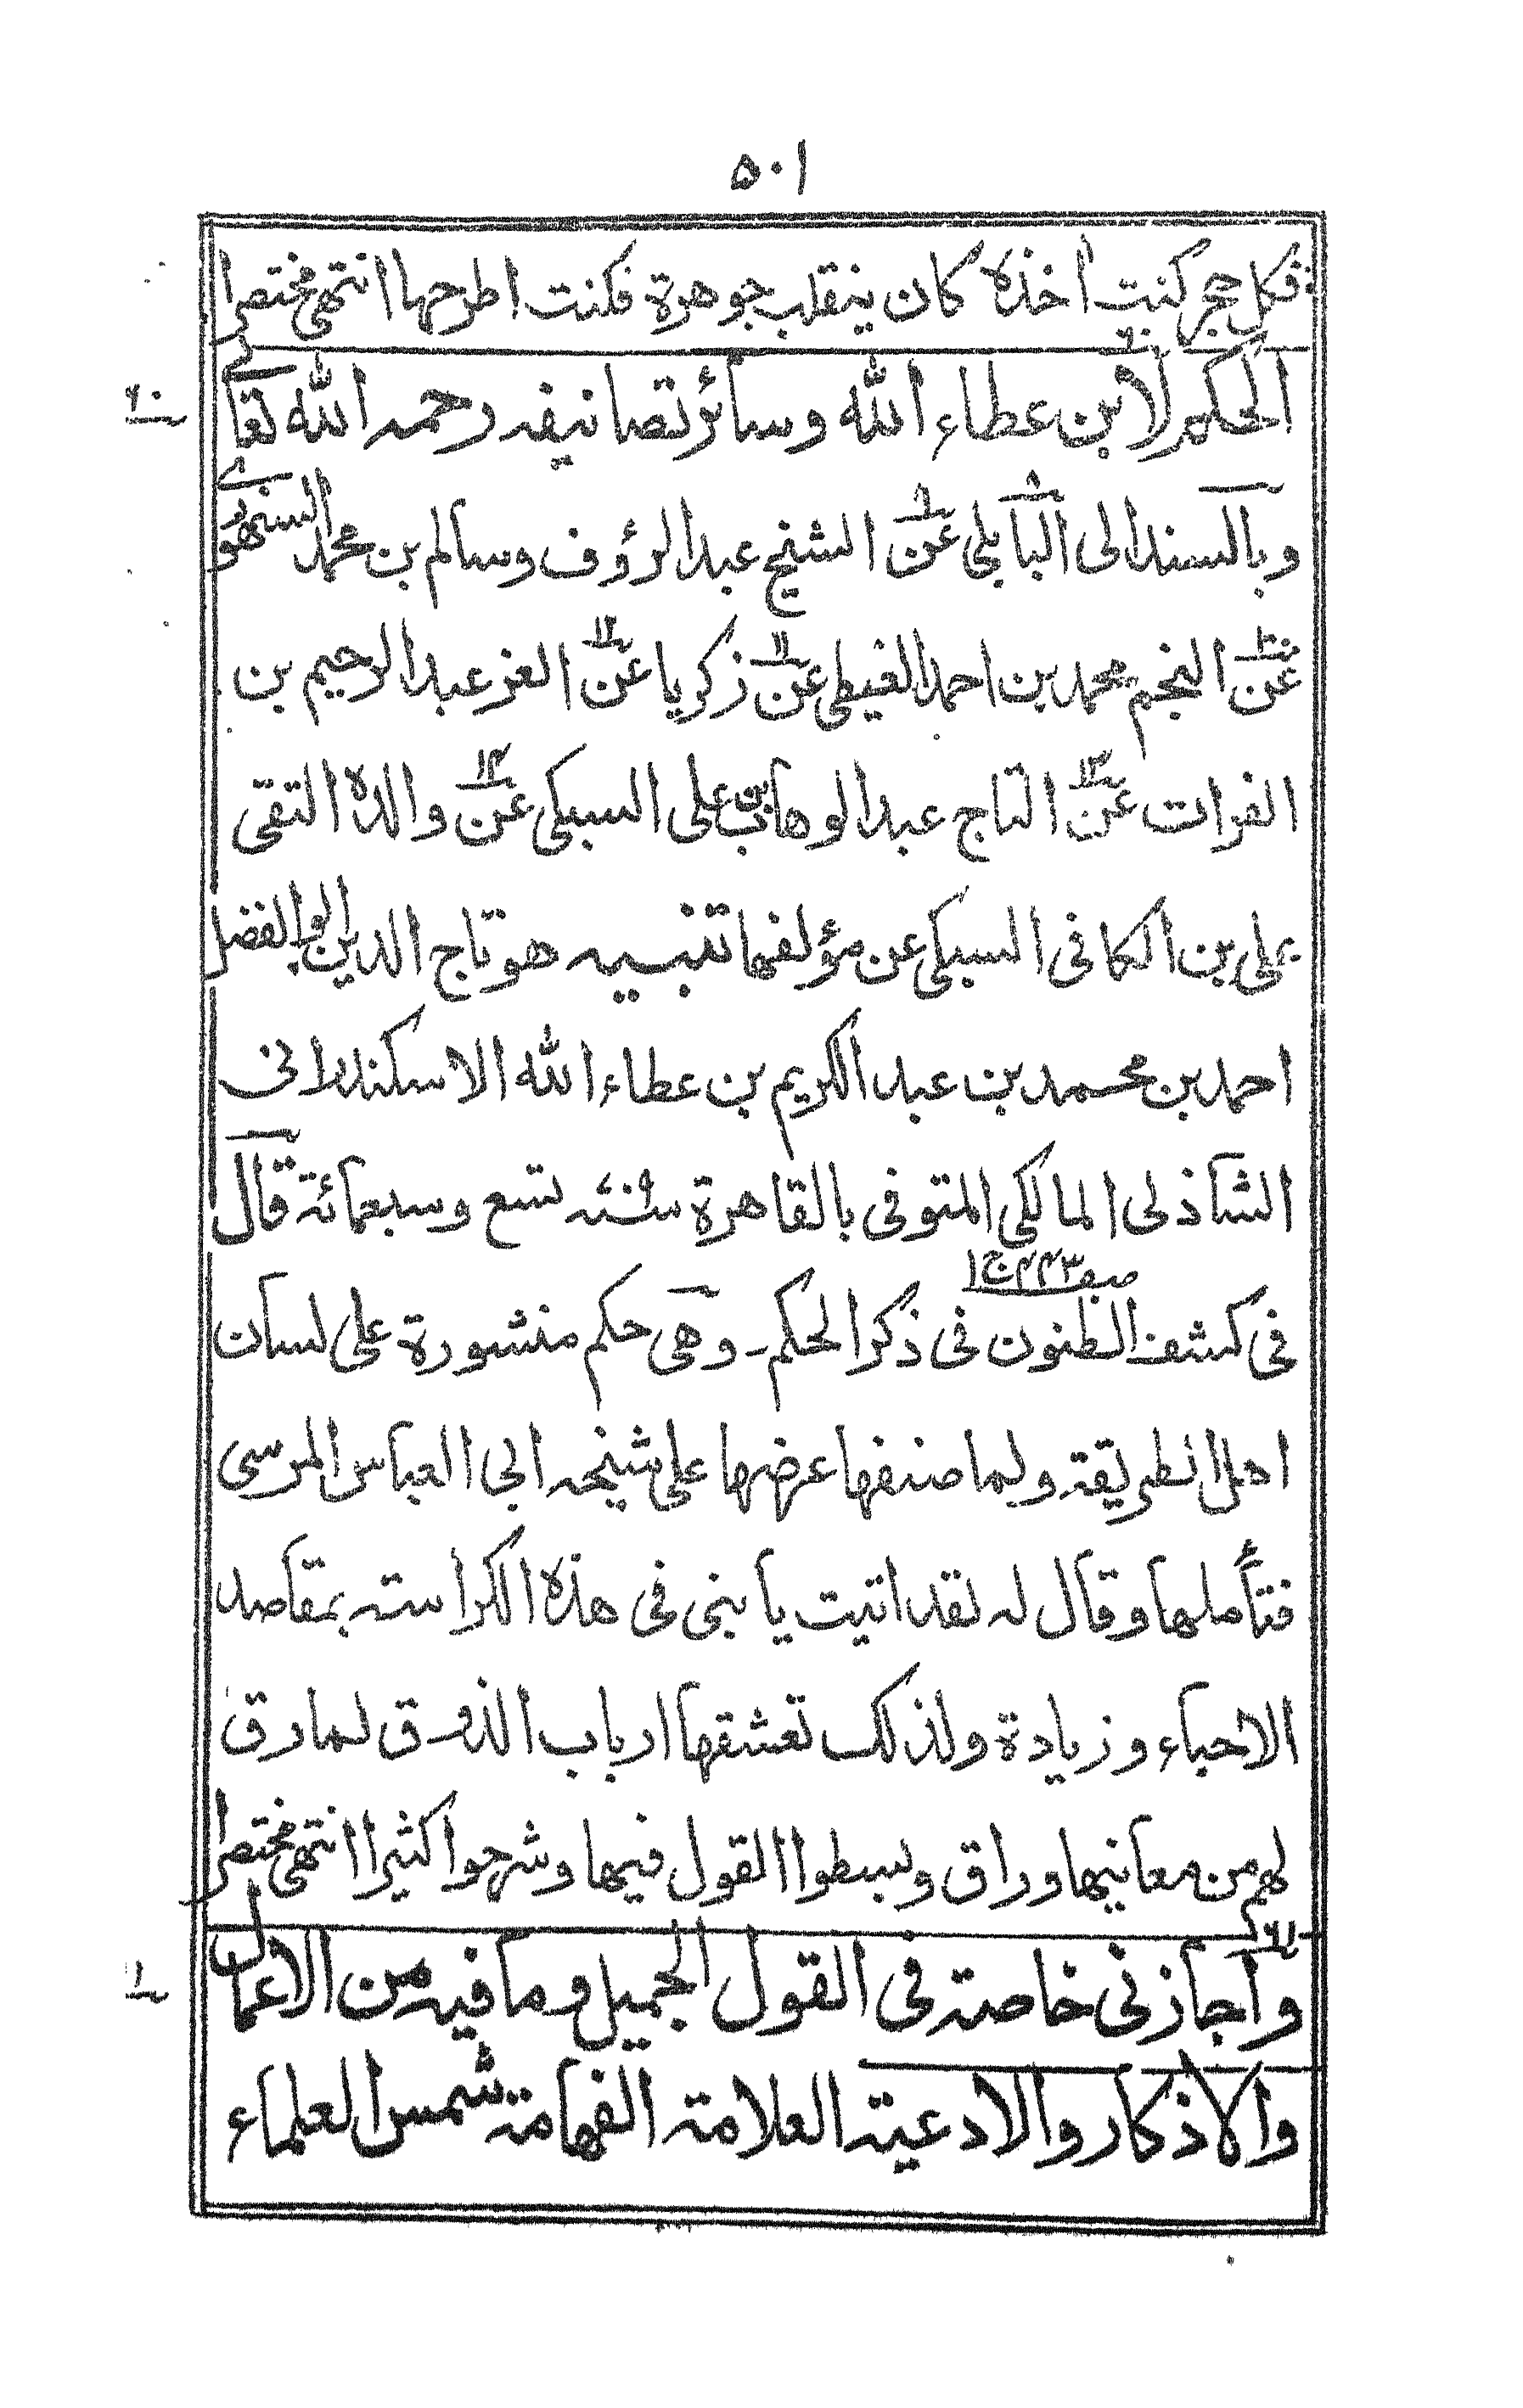 ٥٠١
فكل حجر كنت اخذه كان ينقلب جوهرة فكنت اطرحها انتهى مختصرا
٦٠
الحكم لابن عطاء الله وسائر تصانيفه رحمه الله تعالے
وبالسند الى البابلى ٨ عن ٩ الشيخ عبد الرؤف وسالم بن محمد السنهورے
عن ١٠ النجم محمد بن احمد الغيطى عن ١١ زكريا عن ١٢ العز عبد الرحيم بن
الفرات عن ١٣ التاج عبد الوهاب بن على السبكى عن ١٤ والده التقى
على بن الكافى السبكى عن مؤلفها تنبيه هو تاج الدين ابو الفضل
احمد بن محمد بن عبد الكريم بن عطاء الله الاسكندرانى
الشاذلى المالكى المتوفى بالقاهرة سنة ٧٠٩ تسع وسبعمائة قال
صفـ ٤٤٣ ج ١
فى كشف الظنون فى ذكر الحكم - وهى حكم منثورة على لسان
اهل الطريقة ولما صنفها عرضها على شيخه ابى العباس المرسى
فتأملها وقال له لقد اتيت يا بنى فى هذه الكراسة بمقاصد
الاحياء وزيادة ولذلك تعشقها ارباب الذوق لما رق
لهم من معانيها وراق وبسطوا القول فيها وشرحوا كثيرا انتهى مختصرا
٦١
واجازنى خاصة فى القول الجميل وما فيه من الاعمال
والاذكار والادعية العلامة الفهامة شمس العلماء